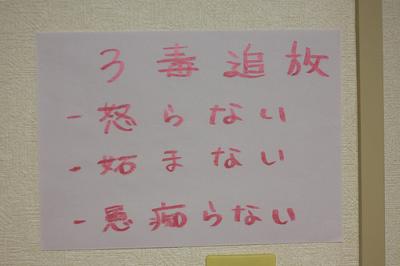 3毒追放
-怒らない
-妬まない
-愚痴らない